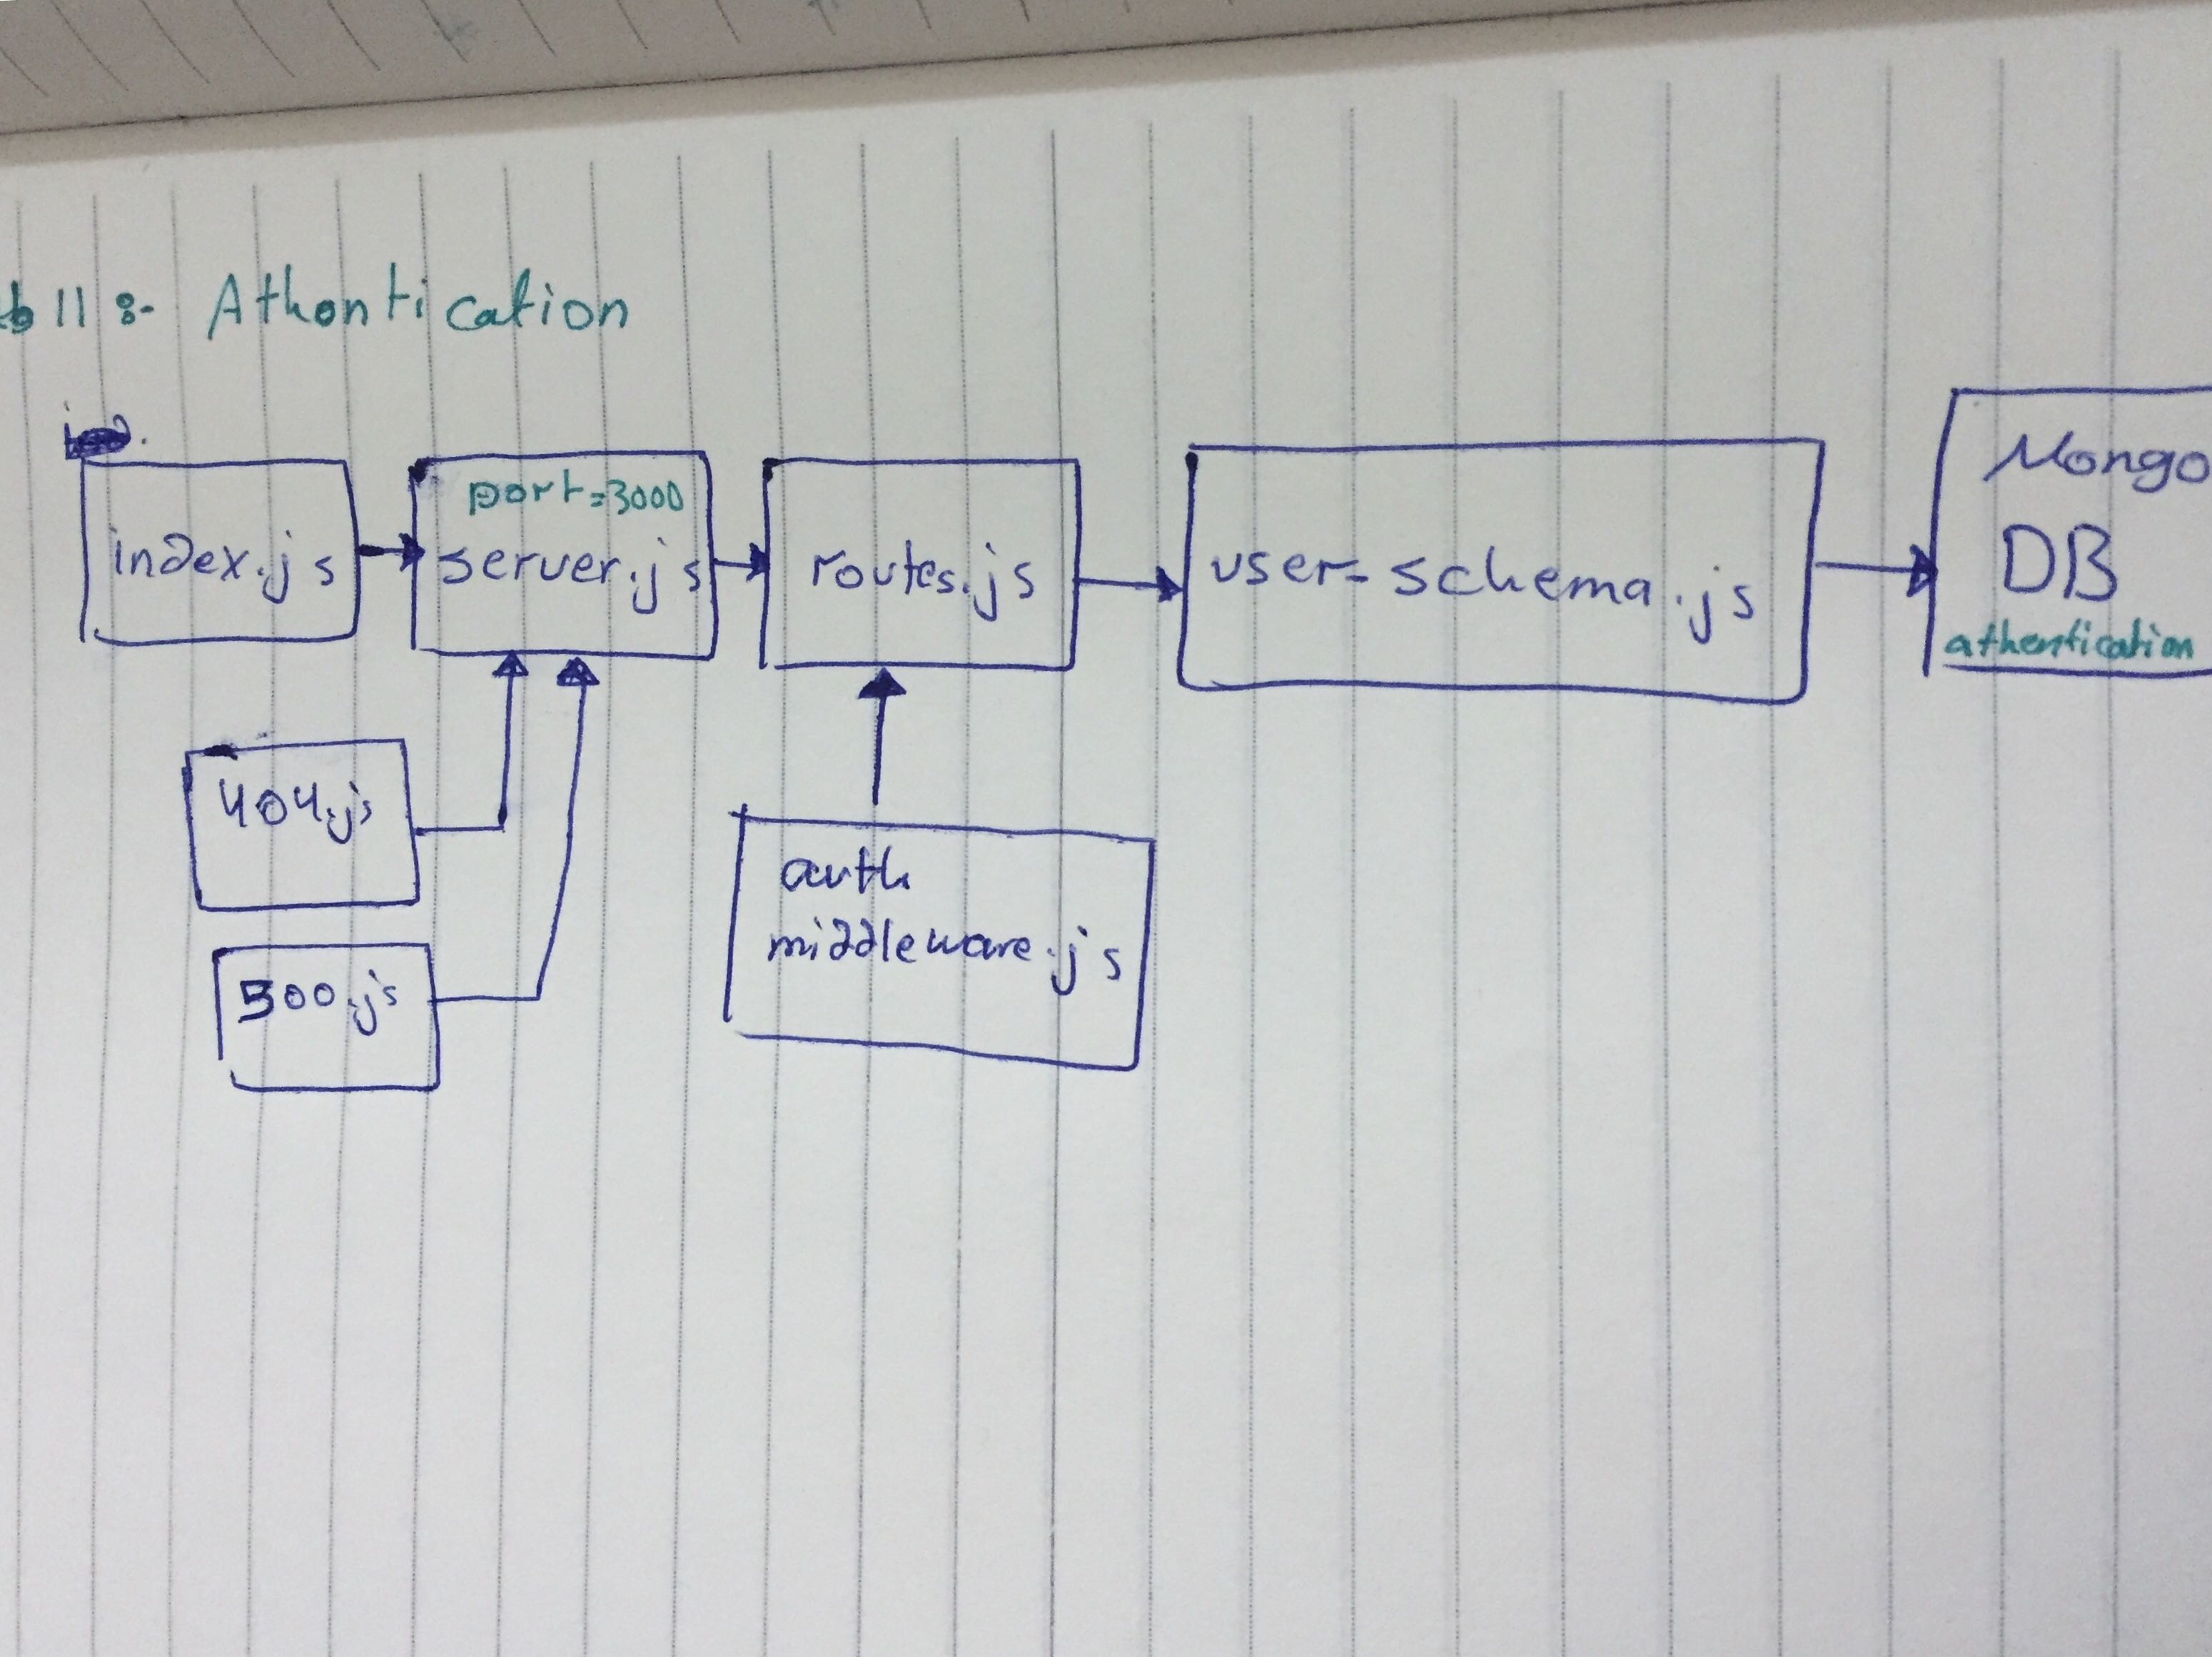 11 :- Athontication
index.js
port=3000
server.js
routes.js
user-schema.js
Mongo
DB
athentication
404.js
500.js
auth
middleware.js